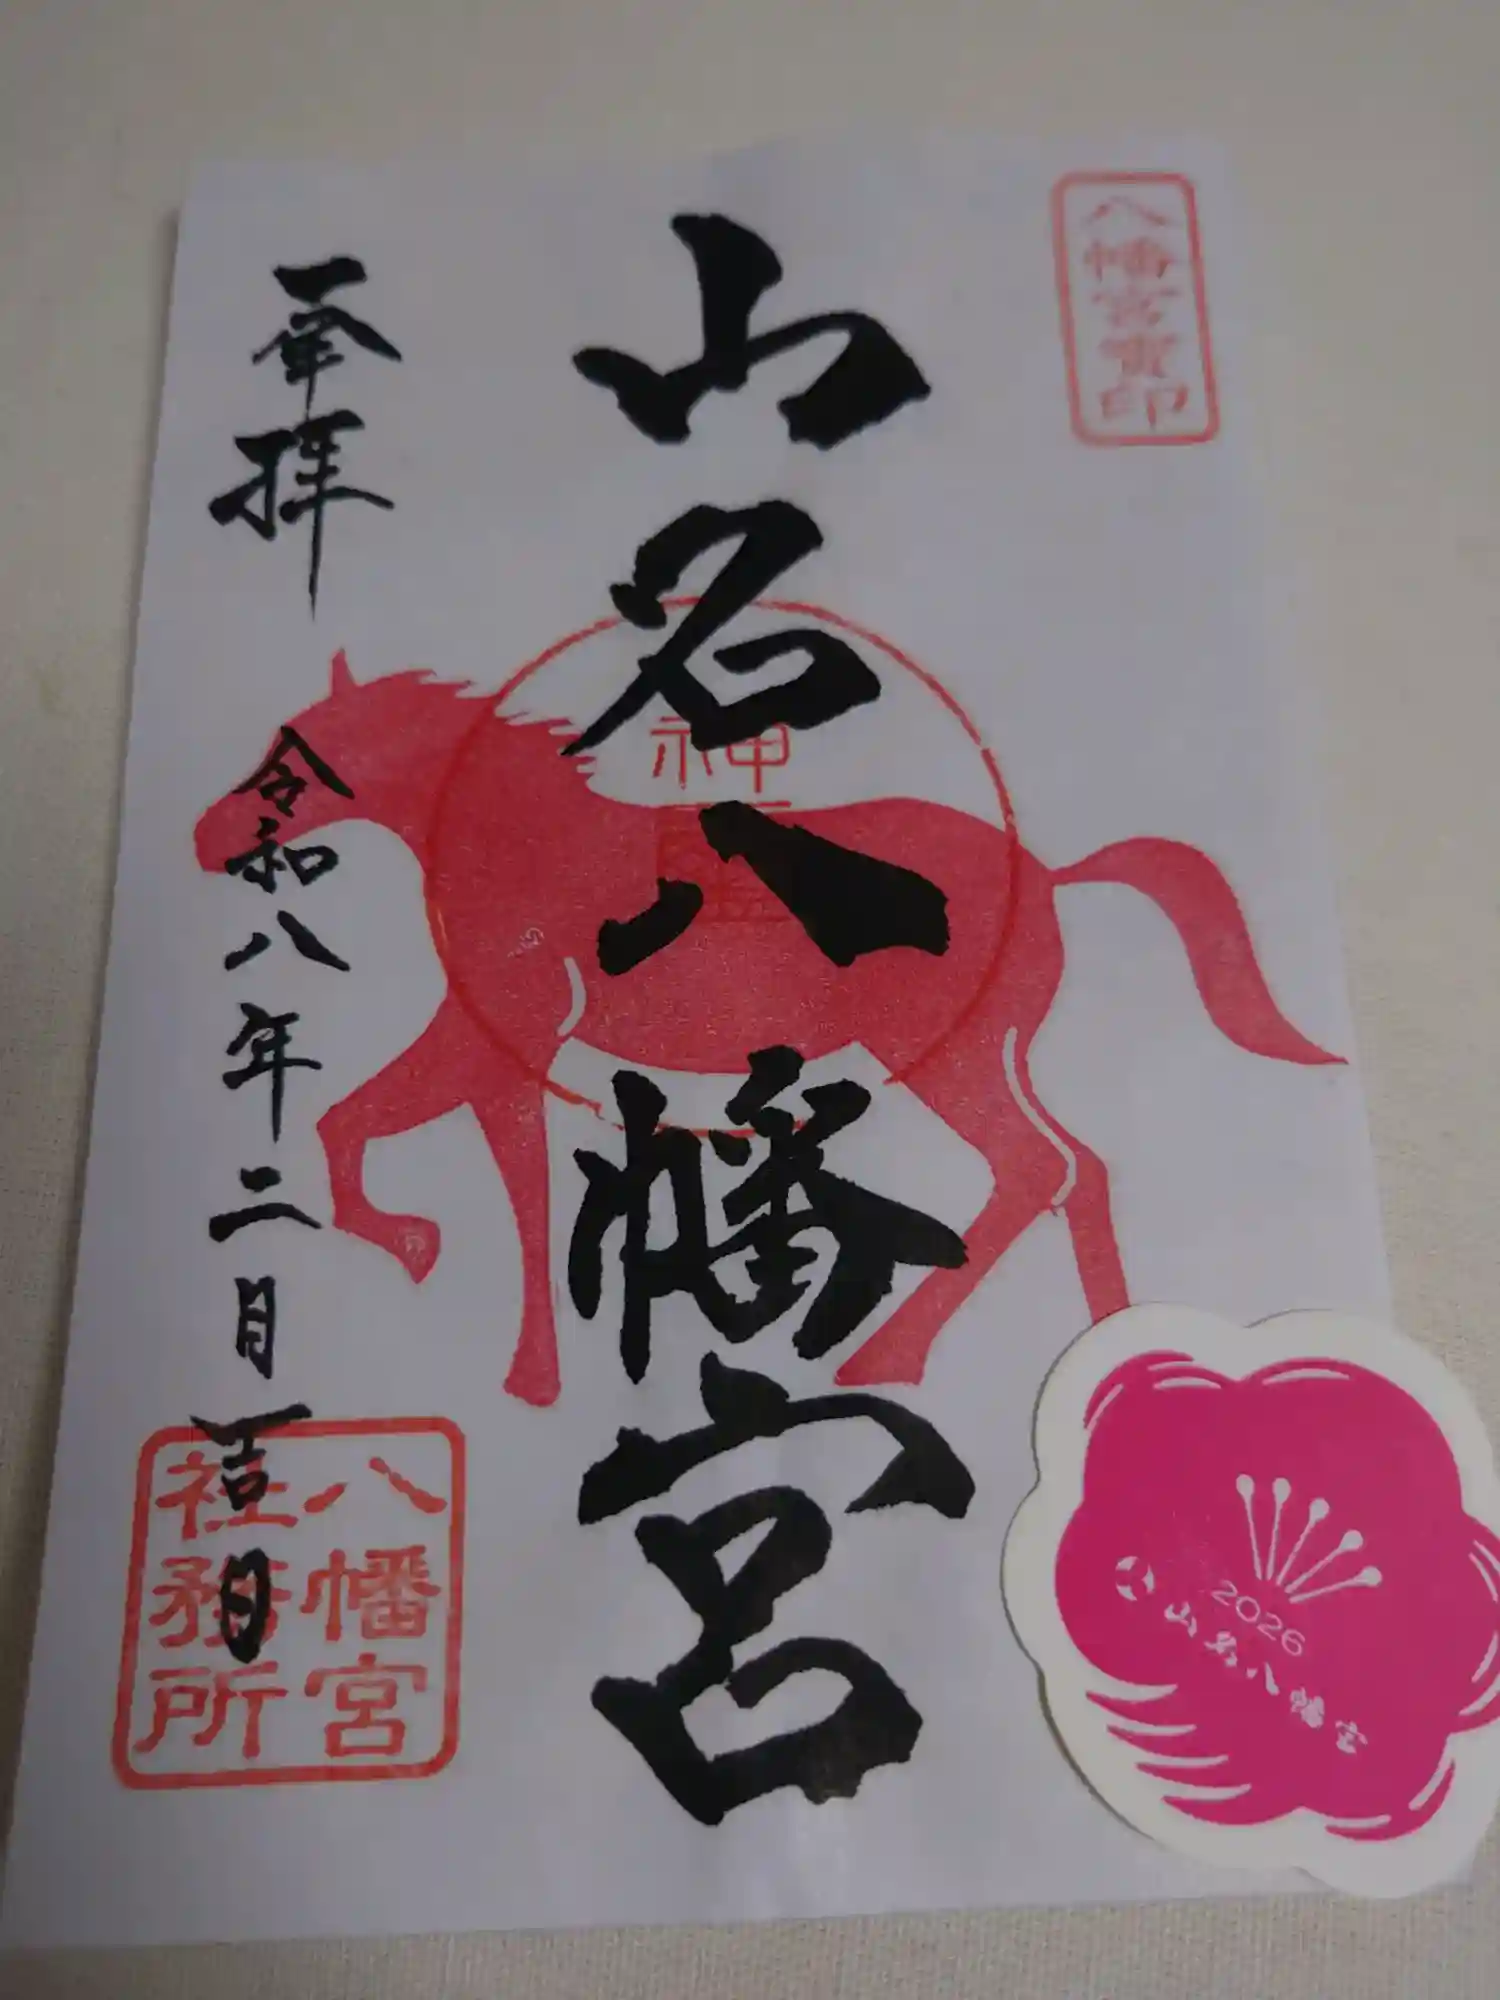 八幡宮寶印
山名八幡宮
神
奉拝
令和八年二月吉日
八幡宮
社務所
2026
山名八幡宮